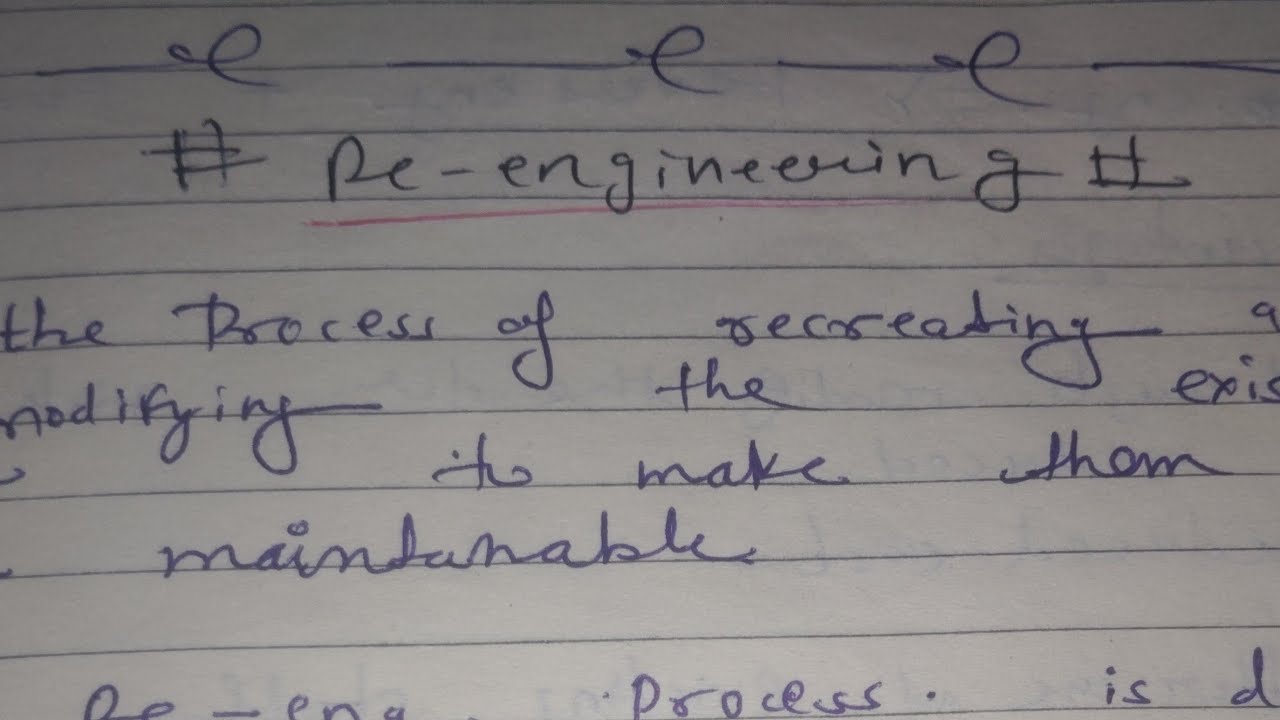 # Re-engineering #
the Process of recreating a
modifying the exis
to make them
maintanable.
Re-eng. Process. is d